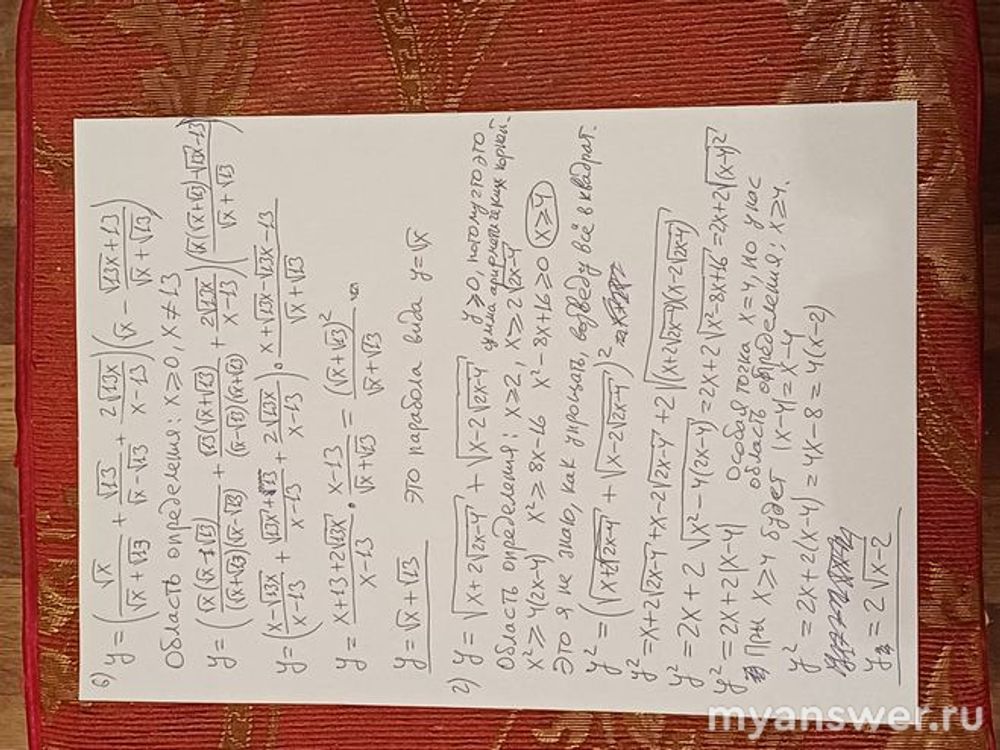 в) y = (√x/(√x + √13) + √13/(√x - √13) + 2√(13x)/(x - 13))(√x - (√(13x) + 13)/(√x + √13))
Область определения: x ≥ 0, x ≠ 13
y = (√x(√x - √13)/((√x + √13)(√x - √13)) + √13(√x + √13)/((√x - √13)(√x + √13)) + 2√(13x)/(x - 13))(√x(√x + √13) - √(13x) - 13)/(√x + √13)
y = ((x - √(13x))/(x - 13) + (√(13x) + 13)/(x - 13) + 2√(13x)/(x - 13)) · (x + √(13x) - √(13x) - 13)/(√x + √13)
y = (x + 13 + 2√(13x))/(x - 13) · (x - 13)/(√x + √13) = (√x + √13)²/(√x + √13)
y = √x + √13 это парабола вида y = √x
г) y = √(x + 2√(2x - 4)) + √(x - 2√(2x - 4)) y ≥ 0, потому что это
сумма арифметических корней.
Область определения: x ≥ 2, x ≥ 2√(2x - 4)
x² ≥ 4(2x - 4) x² ≥ 8x - 16 x² - 8x + 16 ≥ 0 x ≥ 4
Это я не знаю, как упрощать, возведу всё в квадрат.
y² = (√(x + 2√(2x - 4)) + √(x - 2√(2x - 4)))²
y² = x + 2√(2x - 4) + x - 2√(2x - 4) + 2√((x + 2√(2x - 4))(x - 2√(2x - 4)))
y² = 2x + 2√(x² - 4(2x - 4)) = 2x + 2√(x² - 8x + 16) = 2x + 2√((x - 4)²)
y² = 2x + 2|x - 4| Особая точка x = 4, но у нас
область определения: x ≥ 4.
При x ≥ 4 будет |x - 4| = x - 4
y² = 2x + 2(x - 4) = 4x - 8 = 4(x - 2)
y = 2√(x - 2)
myanswer.ru